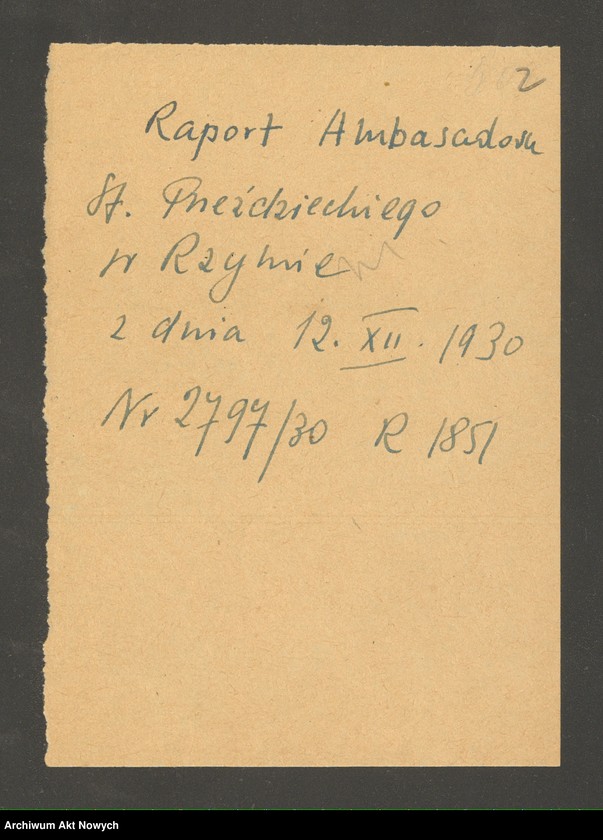 2
Raport Ambasadora
St. Przeździeckiego
w Rzymie
z dnia 12. XII. 1930
Nr 2797/30 R 1851
Archiwum Akt Nowych